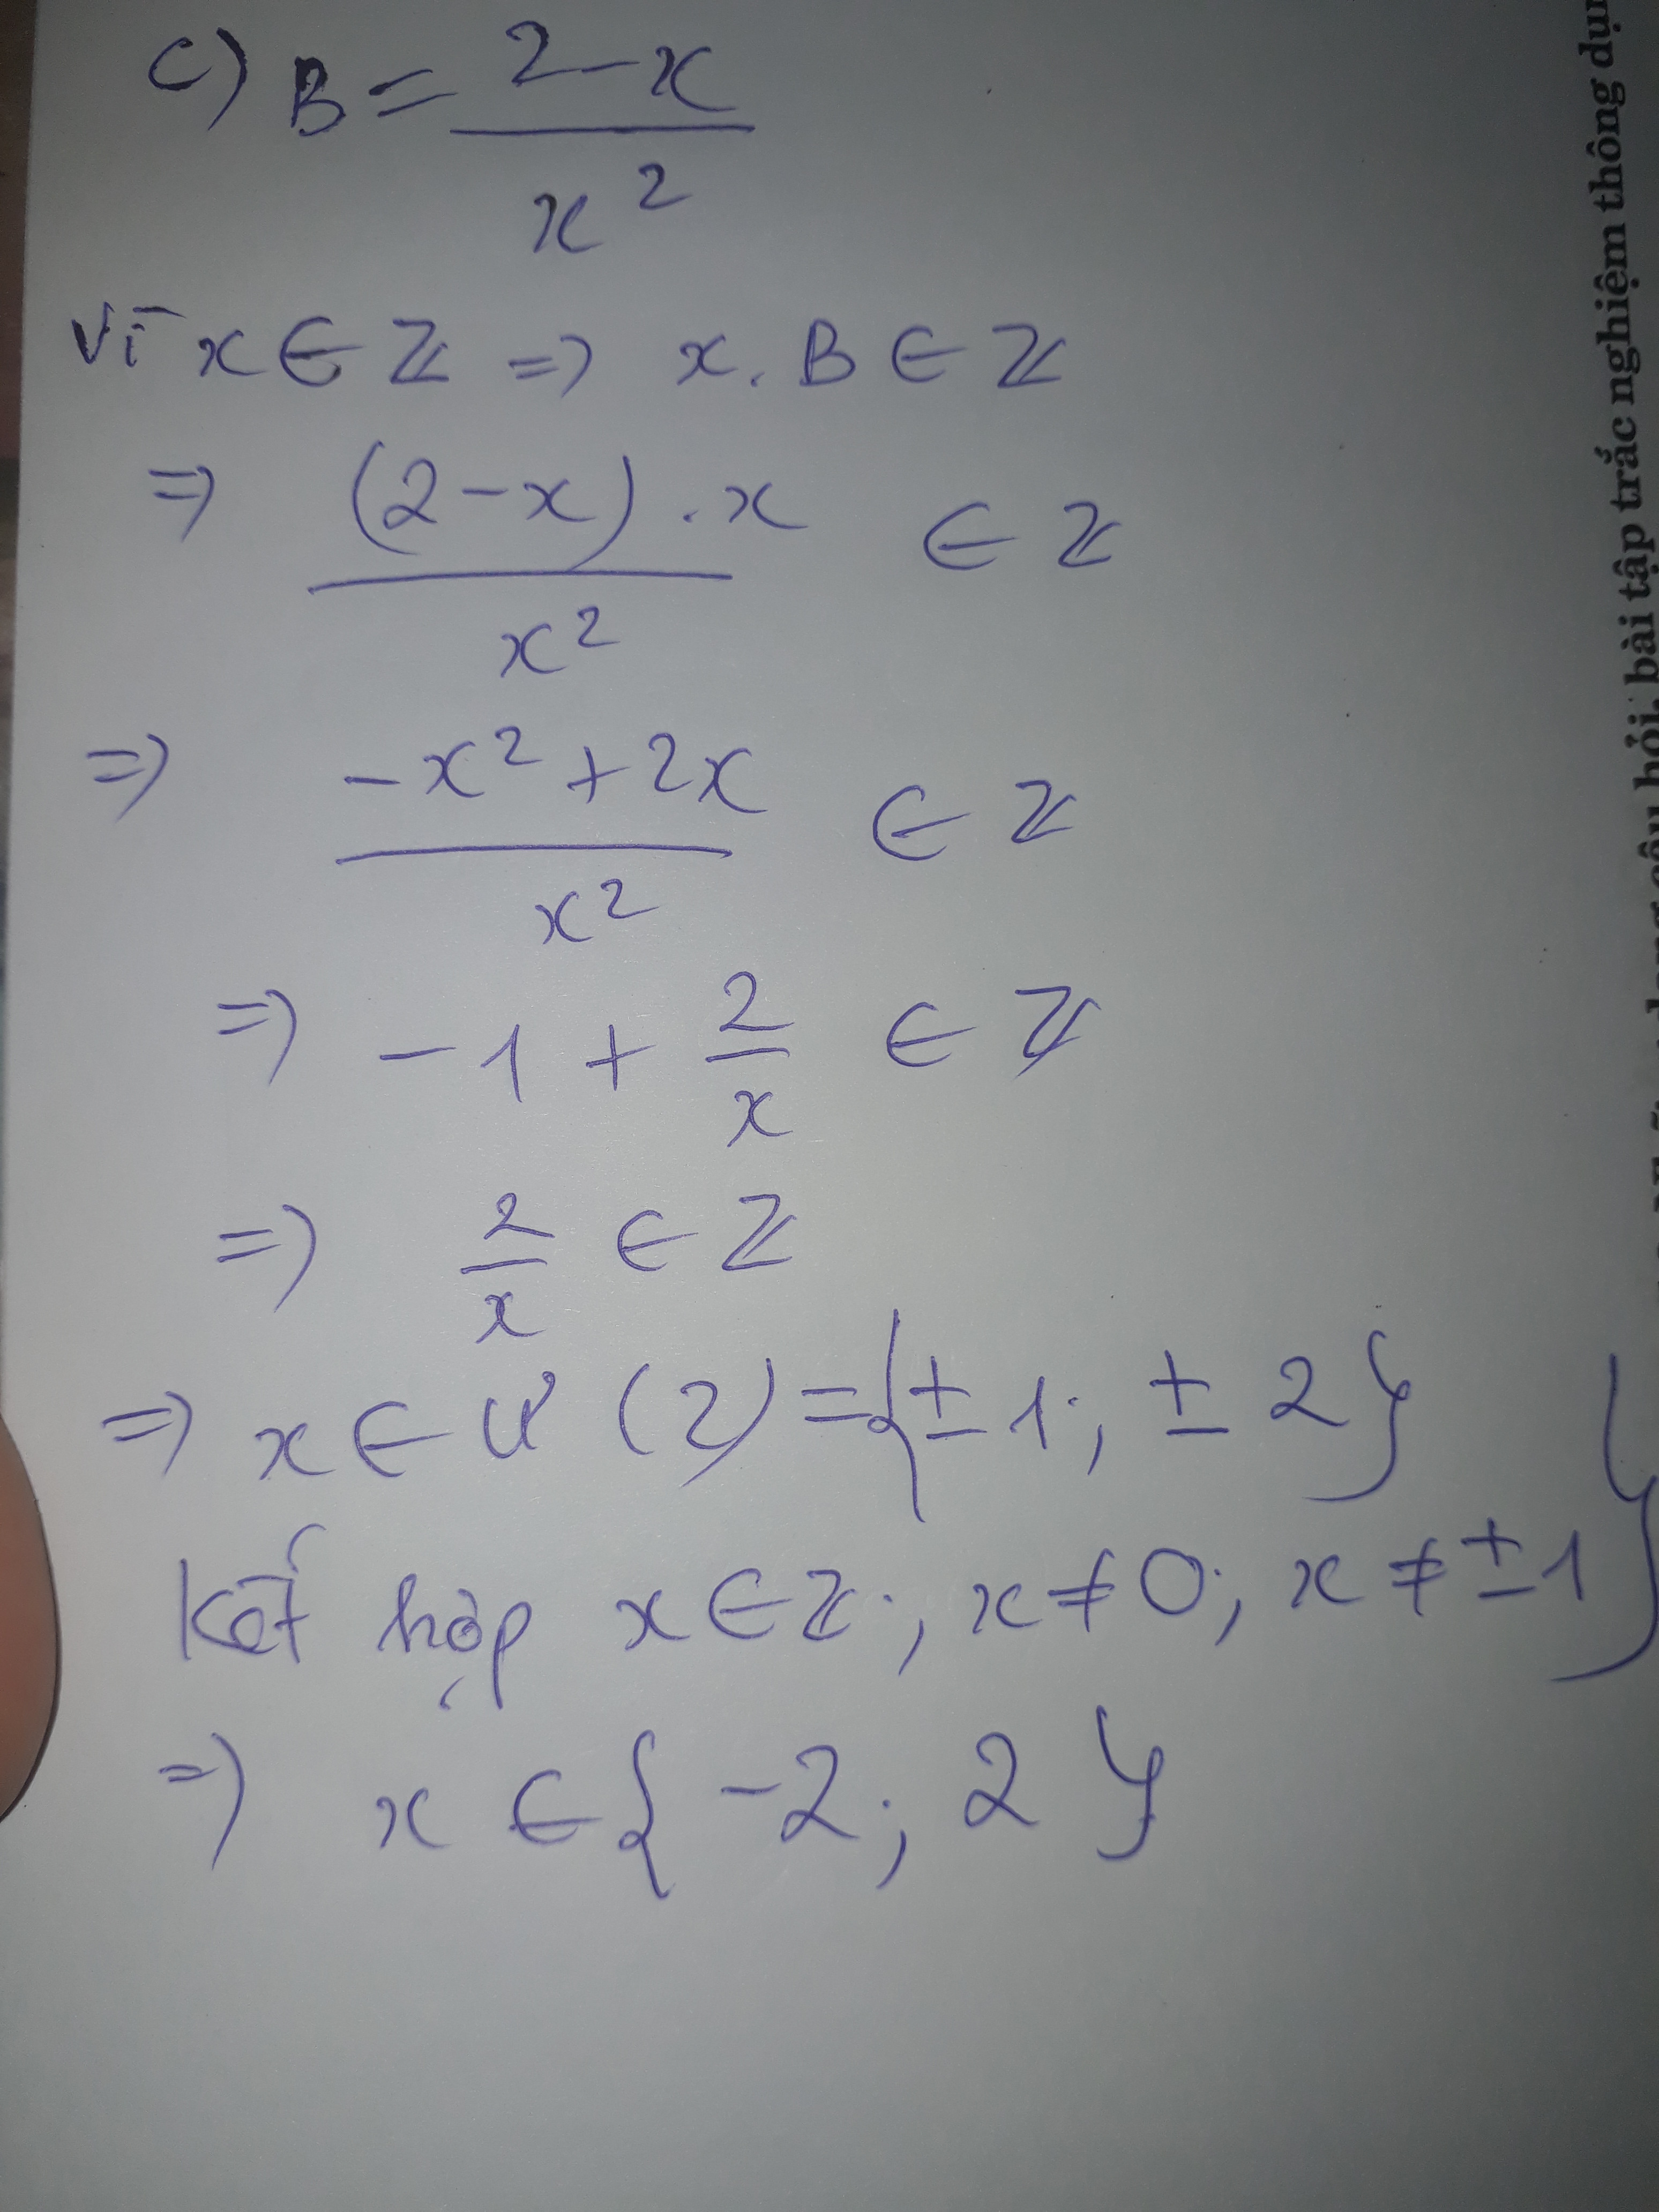 c) B = \frac{2-x}{x^2}
Vì x ∈ Z => x. B ∈ Z
=> \frac{(2-x).x}{x^2} ∈ Z
=> \frac{-x^2+2x}{x^2} ∈ Z
=> -1 + \frac{2}{x} ∈ Z
=> \frac{2}{x} ∈ Z
=> x ∈ Ư (2) = {± 1; ± 2}
Kết hợp x ∈ Z; x ≠ 0; x ≠ ±1 }
=> x ∈ {-2; 2}
câu hỏi, bài tập trắc nghiệm thông dụn